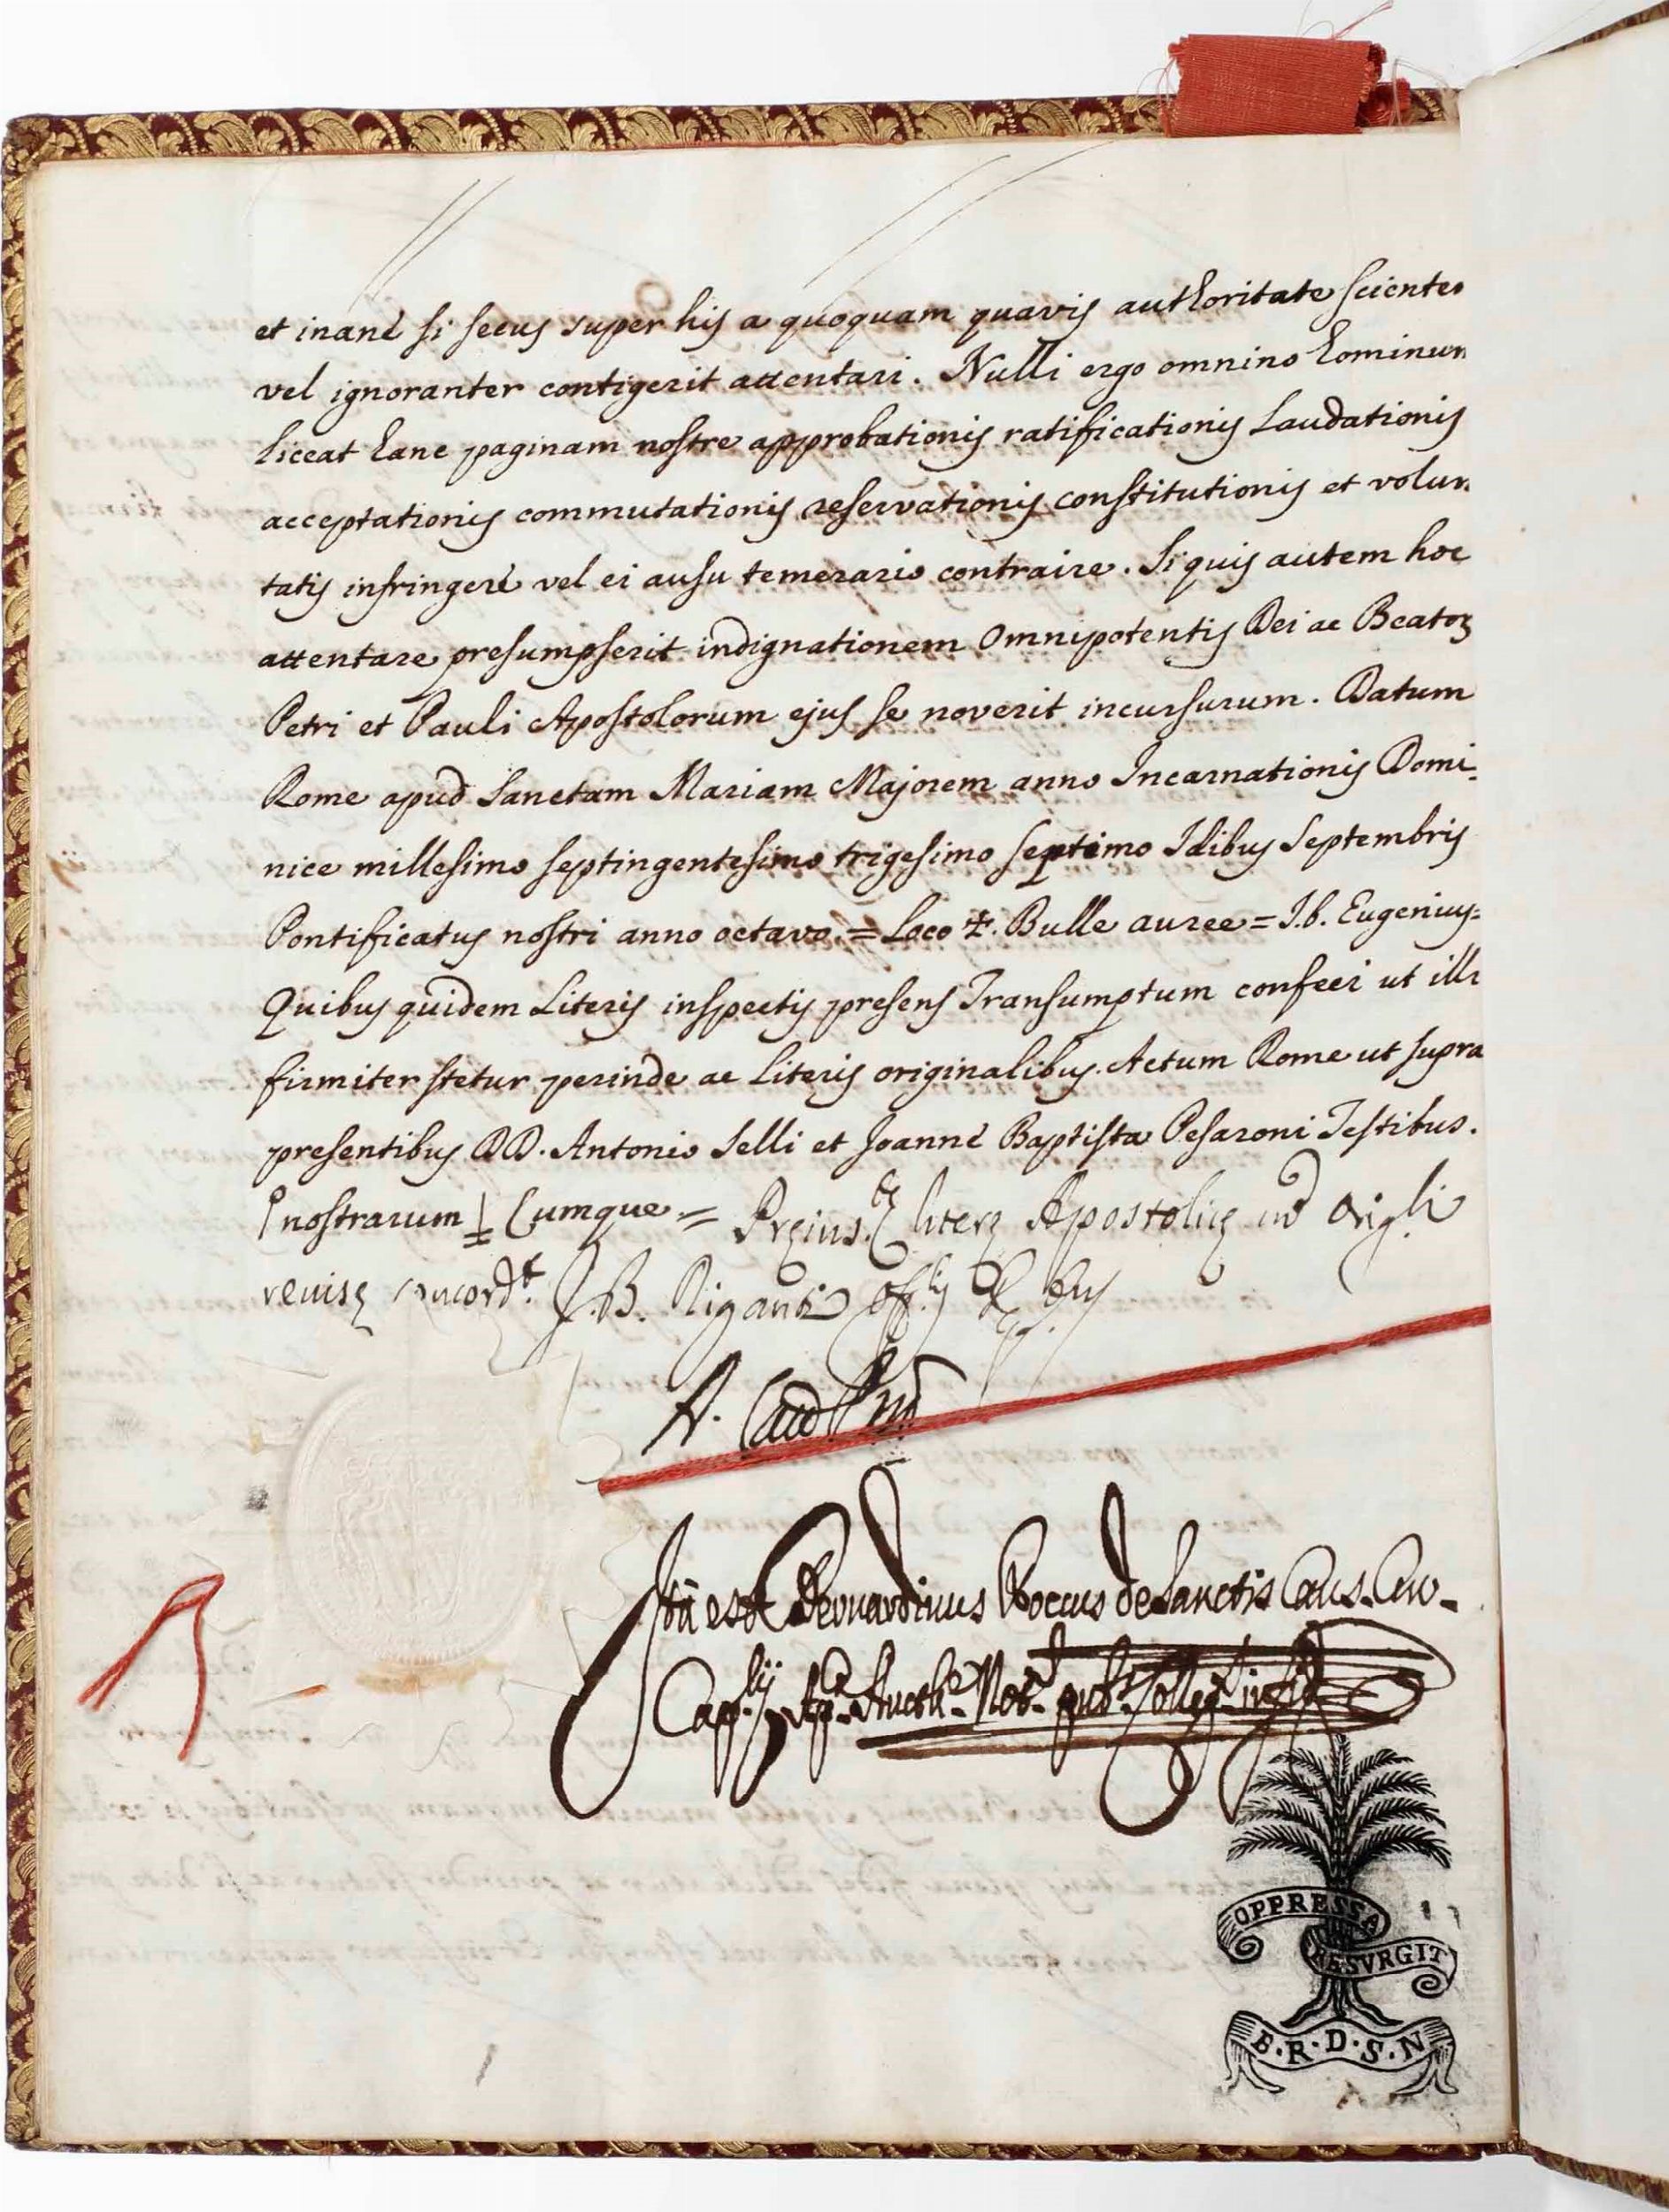 et inane si secus super his a quoquam quavis authoritate scienter
vel ignoranter contigerit attentari. Nulli ergo omnino hominum
liceat hanc paginam nostre approbationis ratificationis laudationis
acceptationis commutationis reservationis constitutionis et volun
tatis infringere vel ei ausu temerario contraire. Si quis autem hoc
attentare presumpserit indignationem Omnipotentis Dei ac Beatoꝝ
Petri et Pauli Apostolorum ejus se noverit incursurum. Datum
Rome apud Sanctam Mariam Majorem anno Incarnationis Domi-
nice millesimo septingentesimo trigesimo septimo Idibus Septembris
Pontificatus nostri anno octavo = Loco ✝. Bulle auree = I.b. Eugenius =
Quibus quidem Literis inspectis presens Transumptum confeci ut illi
firmiter stetur perinde ac Literis originalibus. Actum Rome ut supra
presentibus DD. Antonio Selli et Joanne Baptista Pesaroni Testibus.
nostrarum Cumque = literę Apostolicę Origli
revisę concordt. J.B. Riganti Offlis
A. Card
Ita est Bernardinus Roccus de Sanctis Caus. Cur.
Caplij Apca Aucthe Nots pubs Colleg
OPPRESSA
RESVRGIT
B·R·D·S·N